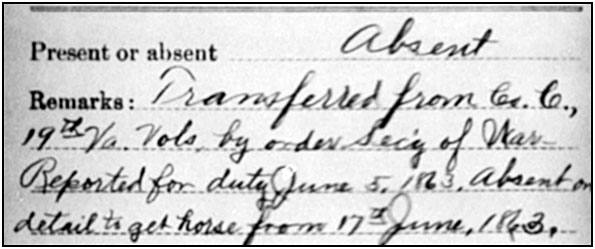 Present or absent Absent
Remarks: Transferred from Co. C.,
19th Va. Vols. by order Sec'y of War
Reported for duty June 5, 1863. Absent on
detail to get horse from 17th June, 1863.